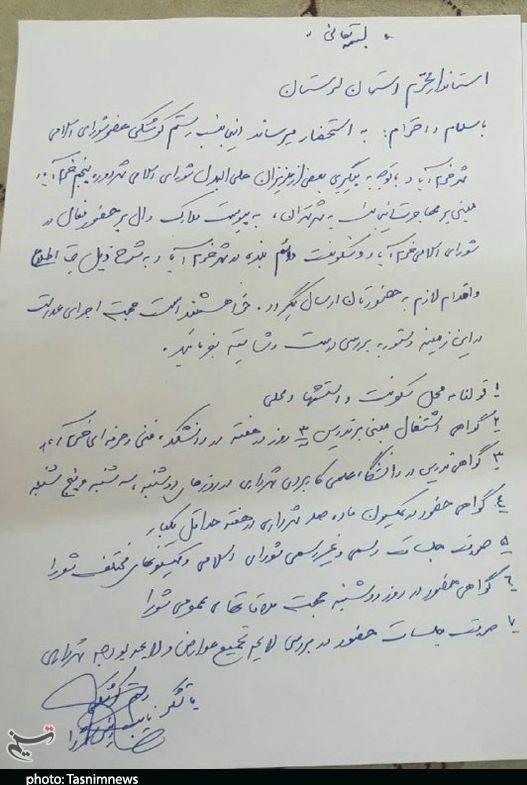 بسمه تعالی
استاندار محترم استان لرستان
با سلام و احترام: به استحضار میرساند اینجانب رستم گوشکی عضو شورای اسلامی
شهر خرم آباد با توجه به پیگیری بعضی از عزیزان علی البدل شورای اسلامی شهر دوره پنجم خرم آباد
مبنی بر مهاجرت اینجانب به تهران، به پیوست مدارک دال بر حضور فعال در
شورای اسلامی خرم آباد و سکونت دائم بنده در شهر خرم آباد به شرح ذیل جهت اطلاع
و اقدام لازم به حضورتان ارسال میگردد. خواهشمند است جهت اجرای عدالت
در این زمینه دستور به بررسی درست و شایسته بفرمائید.
۱ قولنامه محل سکونت و استشهاد محلی
۲ گواهی اشتغال مبنی بر تدریس ۳ روز در هفته در دانشکده فنی و حرفه ای خرم آباد
۳ گواهی تدریس در دانشگاه علمی کاربردی شهرداری در روزهای دوشنبه، سه شنبه و پنج شنبه
٤ گواهی حضور در کمیسیون ماده صد شهرداری در هفته حداقل یکبار
۵ صورت جلسات رسمی و غیر رسمی شورای اسلامی و کمیسیونهای مختلف شورا
٦ گواهی حضور در روز دوشنبه جهت ملاقاتهای عمومی شورا
۷ صورت جلسات حضور در بررسی لایحه تجمیع عوارض و لایحه بودجه شهرداری
رستم گوشکی
با تشکر نایب رئیس شورا
تسنیم
photo: Tasnimnews